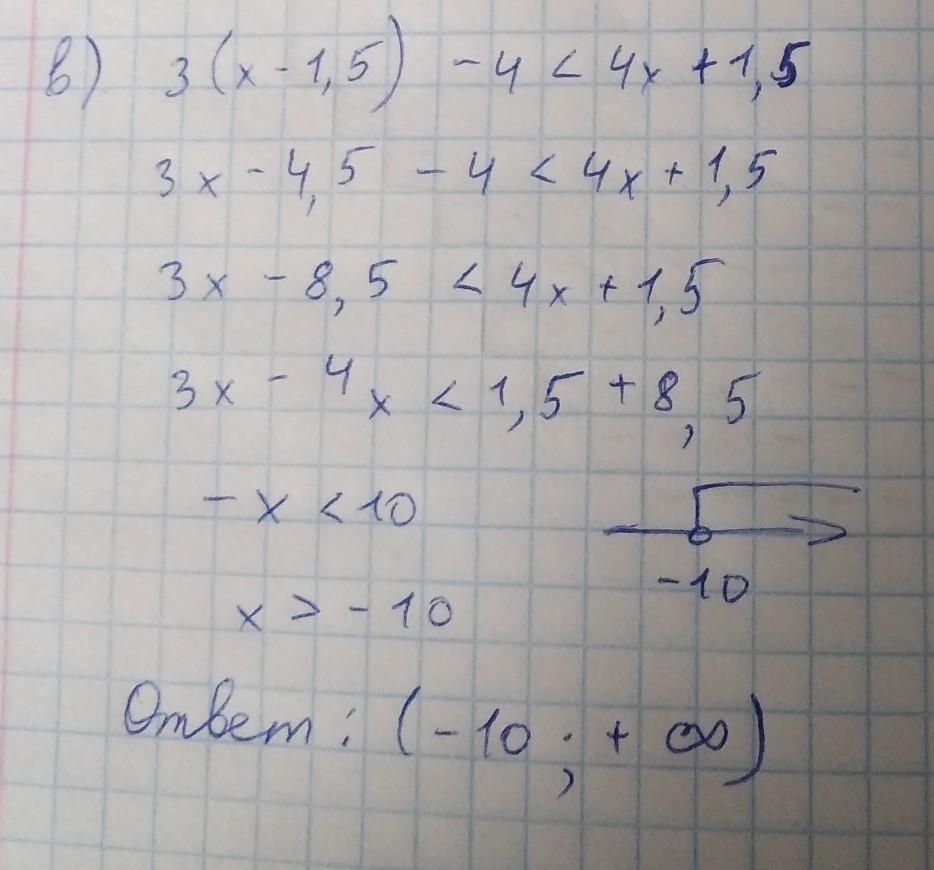 в) 3(x - 1,5) - 4 < 4x + 1,5
3x - 4,5 - 4 < 4x + 1,5
3x - 8,5 < 4x + 1,5
3x - 4x < 1,5 + 8,5
-x < 10
-10
x > -10
Ответ: (-10; +∞)